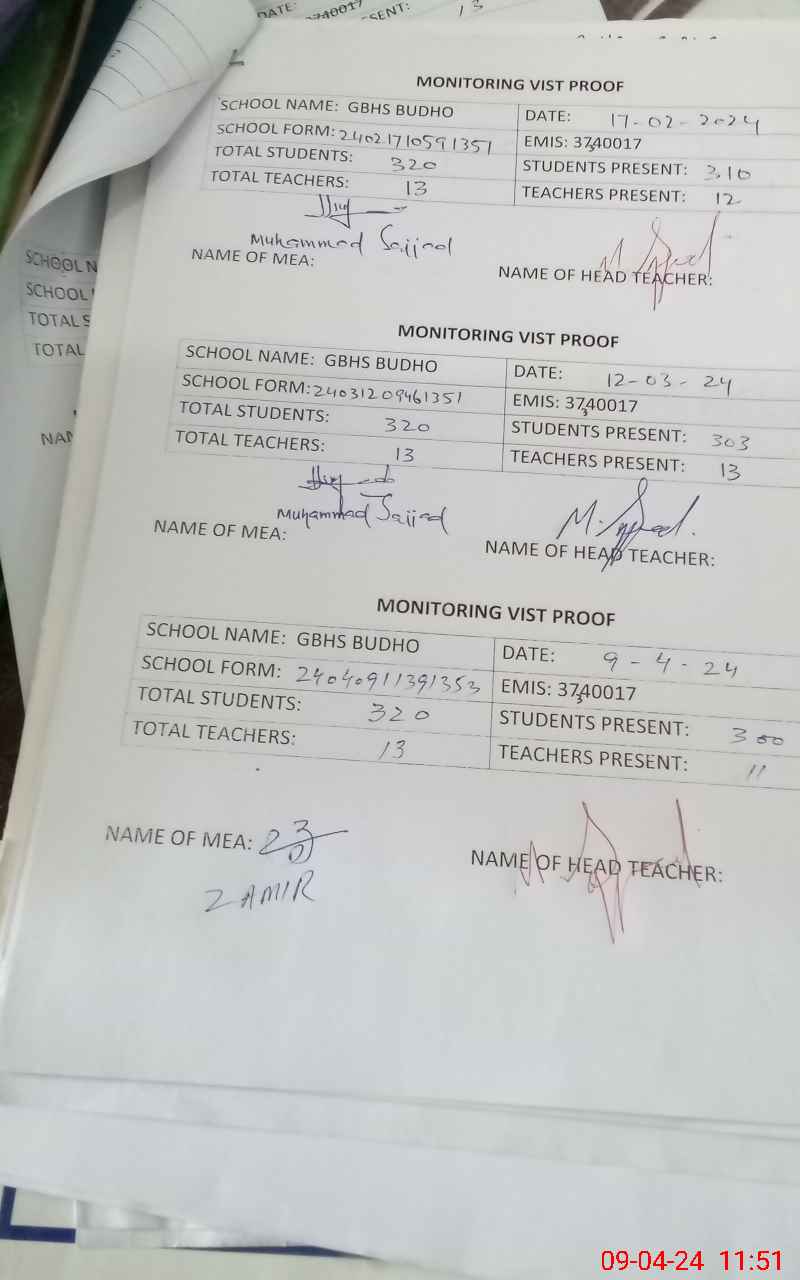 DATE:
740017
SENT: 13
MONITORING VIST PROOF
SCHOOL NAME: GBHS BUDHO DATE: 17-02-2024
SCHOOL FORM: 24021710591351 EMIS: 37340017
TOTAL STUDENTS: 320 STUDENTS PRESENT: 310
TOTAL TEACHERS: 13 TEACHERS PRESENT: 12
Muhammad Sajjad
NAME OF MEA: NAME OF HEAD TEACHER:
SCHOOL N
SCHOOL
TOTAL S
TOTAL
NAM
MONITORING VIST PROOF
SCHOOL NAME: GBHS BUDHO DATE: 12-03-24
SCHOOL FORM: 24031209461351 EMIS: 37340017
TOTAL STUDENTS: 320 STUDENTS PRESENT: 303
TOTAL TEACHERS: 13 TEACHERS PRESENT: 13
Muhammad Sajjad
NAME OF MEA: NAME OF HEAD TEACHER:
MONITORING VIST PROOF
SCHOOL NAME: GBHS BUDHO DATE: 9-4-24
SCHOOL FORM: 24040911391353 EMIS: 37340017
TOTAL STUDENTS: 320 STUDENTS PRESENT: 300
TOTAL TEACHERS: 13 TEACHERS PRESENT: 11
NAME OF MEA: NAME OF HEAD TEACHER:
ZAMIR
09-04-24 11:51